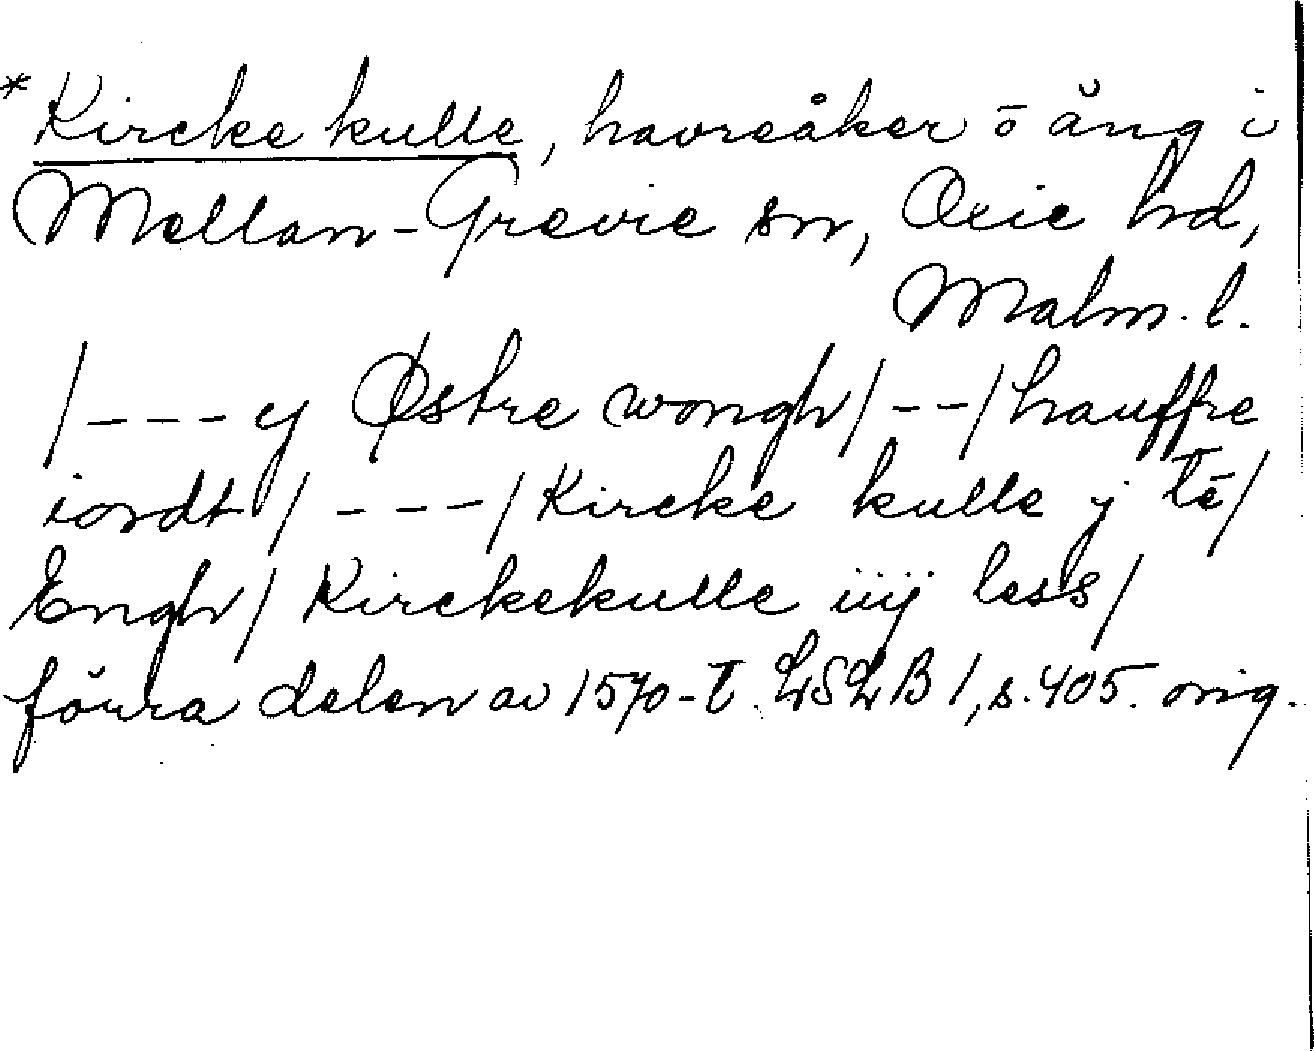 *Kircke kulle, havreåker ō äng i
Mellan-Grevie sn, Oxie hd,
Malm. l.
/---y Østre wongh/--/hauffre
iordt/---/Kircke kulle j Tē/
Engh/Kirckekulle iiij less/
förra delen av 1570-t. LSLB 1, s. 405. orig.